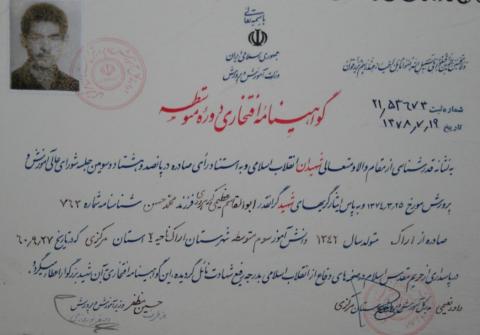 باسمه تعالی
جمهوری اسلامی ایران
وزارت آموزش و پرورش
گواهینامه افتخاری دوره متوسطه
شماره ثبت ۲۱،۵۳۶۷۳
تاریخ ۱۳۷۸،۷،۱۹
به نشانه قدرشناسی از مقام والا و متعالی شهیدان انقلاب اسلامی و به استناد رأی صادره در پانصد و هشتاد و سومین جلسه شورای عالی آموزش و
پرورش مورخ ۱۳۷۴،۳،۲۵ و به پاس ایثارگریهای شهید گرانقدر ابوالقاسم فرزند محمدحسن شناسنامه شماره ۷۶۳
صادره از اراک متولد سال ۱۳۴۲ دانش آموز سوم متوسطه شهرستان اراک ناحیه ۲ استان مرکزی که در تاریخ ۶۰،۹،۲۷
در پاسداری از حریم مقدس اسلام و صف های دفاع از انقلاب اسلامی به درجه رفیع شهادت نائل گردیده، این گواهینامه افتخاری به آن شهید بزرگوار اعطا میگردد.
حسین مظفر وزیر آموزش و پرورش
مدیرکل آموزش و پرورش استان مرکزی